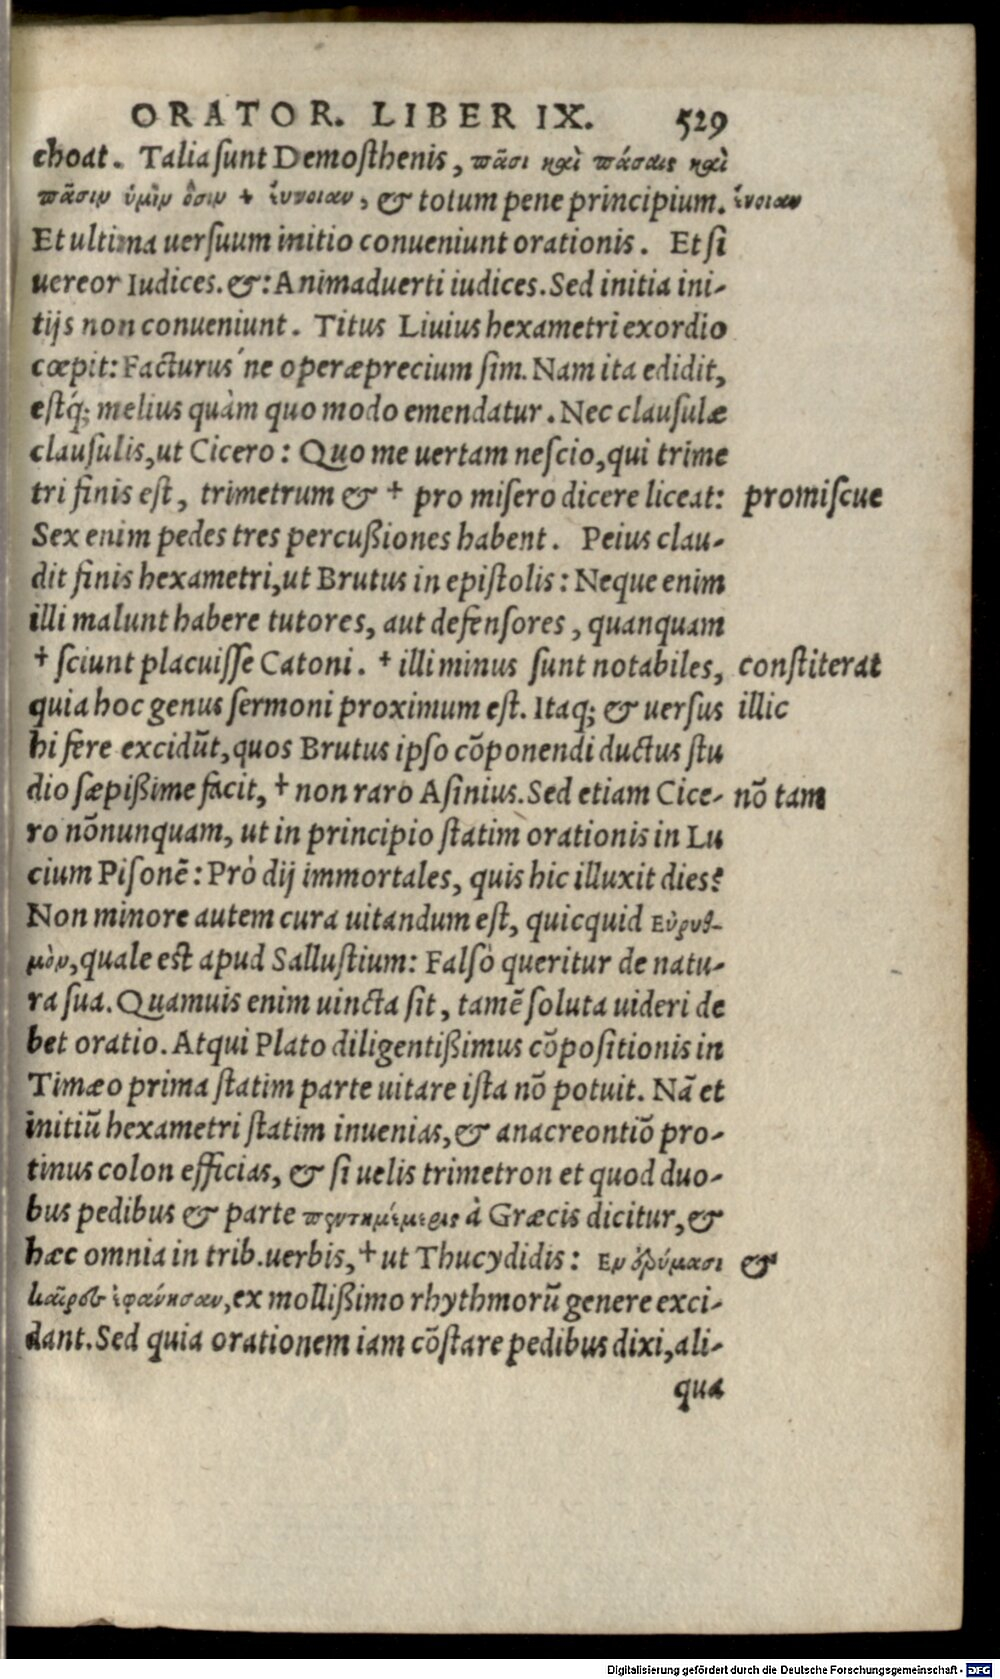 ORATOR. LIBER IX. 529
choat. Talia sunt Demosthenis, πᾶσι καὶ πάσαις καὶ
πᾶσιν ὑμῖν ὅσιν † ἔννοιαν, & totum pene principium. εὔνοιαν
Et ultima uersuum initio conueniunt orationis. Etsi
uereor Iudices. &: Animaduerti iudices. Sed initia ini-
tijs non conueniunt. Titus Liuius hexametri exordio
cœpit: Facturus´ne operæprecium sim. Nam ita edidit,
estq́; melius quàm quo modo emendatur. Nec clausulæ
clausulis, ut Cicero: Quo me uertam nescio, qui trime
tri finis est, trimetrum & † pro misero dicere liceat: promiscue
Sex enim pedes tres percußiones habent. Peius clau-
dit finis hexametri, ut Brutus in epistolis: Neque enim
illi malunt habere tutores, aut defensores, quanquam
† sciunt placuisse Catoni. † illi minus sunt notabiles, constiterat
quia hoc genus sermoni proximum est. Itaq; & uersus illic
hi fere excidūt, quos Brutus ipso cōponendi ductus stu
dio sæpißime facit, † non raro Asinius. Sed etiam Cice- nō tam
ro nōnunquam, ut in principio statim orationis in Lu
cium Pisonē: Prò dij immortales, quis hic illuxit dies?
Non minore autem cura uitandum est, quicquid Εὐρυθ-
μὸν, quale est apud Sallustium: Falsò queritur de natu-
ra sua. Quamuis enim uincta sit, tamē soluta uideri de
bet oratio. Atqui Plato diligentißimus cōpositionis in
Timæo prima statim parte uitare ista nō potuit. Nā et
initiū hexametri statim inuenias, & anacreontiō pro-
tinus colon efficias, & si uelis trimetron et quod duo-
bus pedibus & parte πεντημίμερις à Græcis dicitur, &
hæc omnia in trib. uerbis, † ut Thucydidis: &
ἐφάνησαν, ex mollißimo rhythmorū genere exci-
dant. Sed quia orationem iam cōstare pedibus dixi, ali-
qua
Digitalisierung gefördert durch die Deutsche Forschungsgemeinschaft - DFG